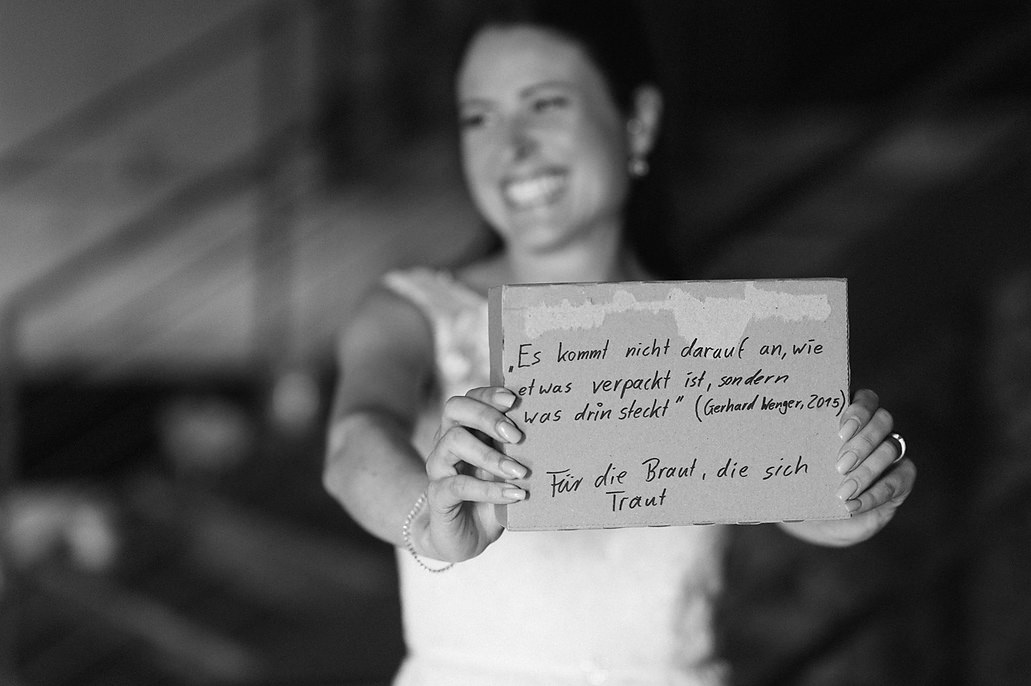 „Es kommt nicht darauf an, wie
etwas verpackt ist, sondern
was drin steckt" (Gerhard Wenger, 2015)
Für die Braut, die sich
Traut